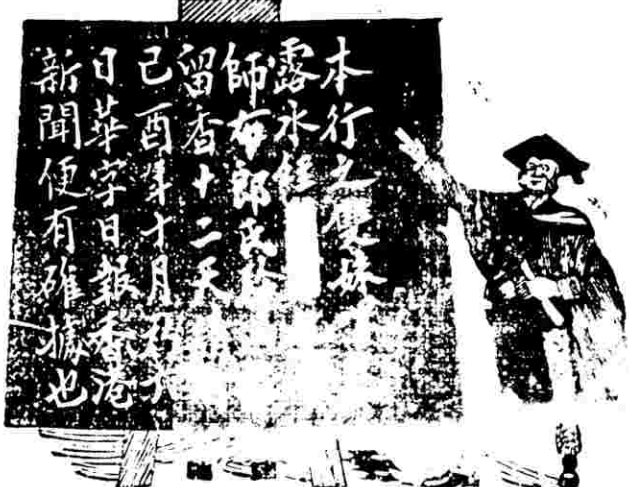 本行之雙妹
露水經
師布郎氏
留香十二天
己酉年十月初六
日華字日報香港
新聞便有確據也